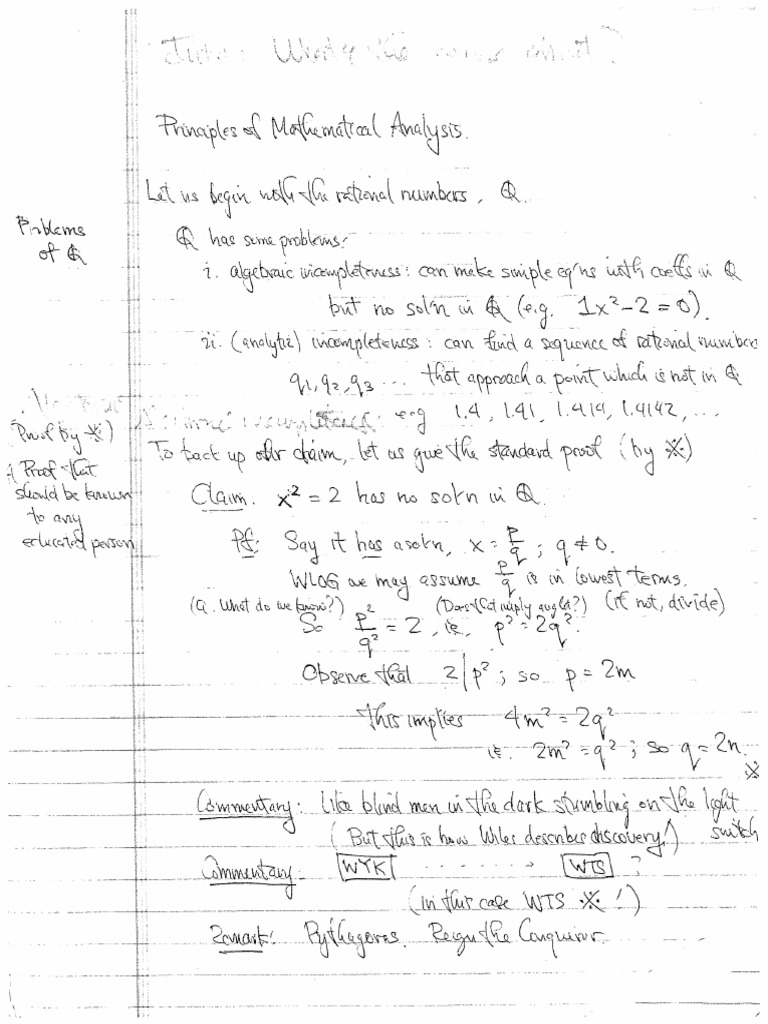 What's the course about?
Principles of Mathematical Analysis.
Let us begin with the rational numbers, ℚ.
Problems
of ℚ
ℚ has some problems:
i. algebraic incompleteness: can make simple eq'ns with coeffs in ℚ
but no sol'n in ℚ (e.g. 1x²-2=0).
ii. (analytic) incompleteness: can find a sequence of rational numbers
q₁, q₂, q₃ ... that approach a point which is not in ℚ
e.g 1.4, 1.41, 1.414, 1.4142, ...
(Proof by ※)
Proof that
should be known
to any
educated person
To back up our claim, let us give the standard proof (by ※)
Claim. x² = 2 has no sol'n in ℚ.
Pf: Say it has a sol'n, x = p/q ; q ≠ 0.
WLOG we may assume p/q is in lowest terms.
(Q. What do we know?) (Does that imply aught?) (if not, divide)
So p²/q² = 2, ie, p² = 2q².
Observe that 2|p² ; so p = 2m
This implies 4m² = 2q²
ie. 2m² = q² ; so q = 2n.
※
Commentary: Like blind men in the dark stumbling on the light
switch
(But this is how Wiles describes discovery!)
Commentary. WYK ........→ WTS ?
(in this case WTS ※!)
Remark: Pythagoras. Reign the Conqueror.